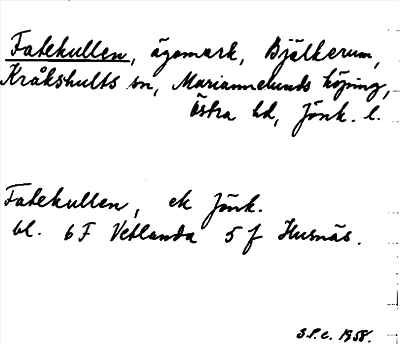 Fatekullen, ägomark, Bjälkerum,
Kråkshults sn, Mariannelunds köping,
Östra hd, Jönk. l.
Fatekullen, ek Jönk.
bl. 6 F Vetlanda 5 f Husnäs.
S.P.c. 1958.